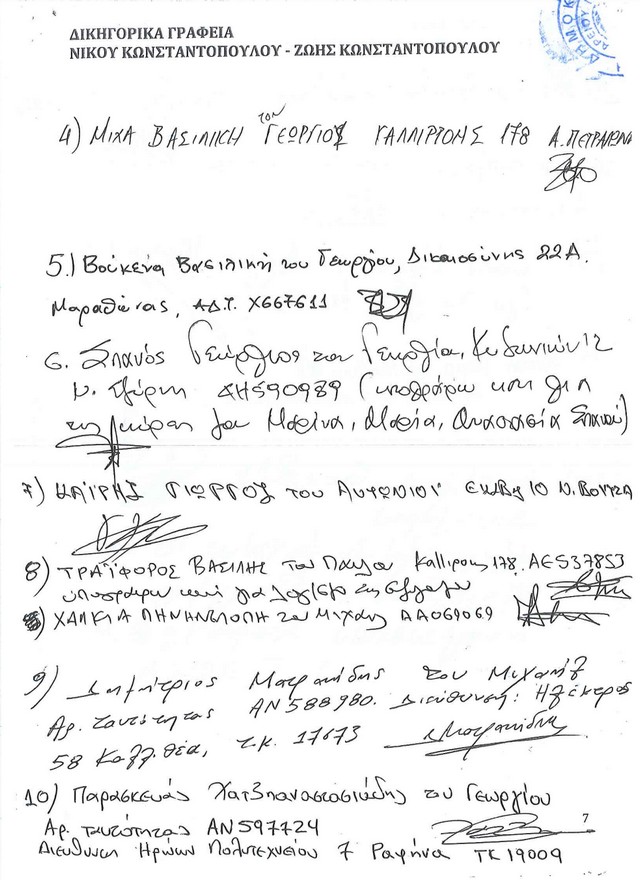 ΔΙΚΗΓΟΡΙΚΑ ΓΡΑΦΕΙΑ
ΝΙΚΟΥ ΚΩΝΣΤΑΝΤΟΠΟΥΛΟΥ - ΖΩΗΣ ΚΩΝΣΤΑΝΤΟΠΟΥΛΟΥ
4) ΜΙΧΑ ΒΑΣΙΛΙΚΗ του ΓΕΩΡΓΙΟΥ ΚΑΛΛΙΡΡΟΗΣ 178 Α. ΠΕΤΡΑΛΩΝΑ
5.) Βουκενα Βασιλική του Γεωργίου, Δικαιοσύνης 22Α.
Μαραθώνας, Α.Δ.Τ. Χ667611
6. Σπανός Γεώργιος του Γεωργία, Κυδωνιών 12
Ν. ΑΗ590989 (υπογράφω και για
της μου Μαρίνα, Μαρία, Αναστασία)
7) ΓΙΩΡΓΟΣ του Αντωνίου 10 Ν. ΒΟΥΤΖΑ
8) ΤΡΑΪΦΟΡΟΣ ΒΑΣΙΛΗΣ του Παύλου Καλλιρόης 178. ΑΕ537853
υπογράφω και για λογ/σμό της συζύγου
) ΧΑΛΚΙΑ ΠΗΝΗΛΟΠΗ του Μιχάλη ΑΑ069069
9) Δημήτριος του Μιχαήλ
Αρ. ταυτότητας ΑΝ588980. Διεύθυνση: Ηλέκτρας
58 Καλλιθέα, τ.κ. 17673
10) Παρασκευάς Χατζηαναστασιάδης του Γεωργίου
Αρ. ταυτότητας ΑΝ597724
Διεύθυνση Ηρώων Πολυτεχνείου 7 Ραφήνα ΤΚ 19009
7